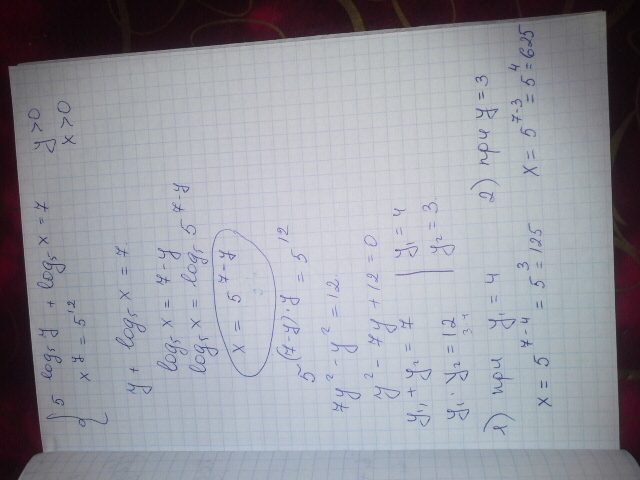 { 5^(log₅ y) + log₅ x = 7    y > 0
x^y = 5^12    x > 0
y + log₅ x = 7
log₅ x = 7 - y
log₅ x = log₅ 5^(7-y)
x = 5^(7-y)
5^((7-y)·y) = 5^12
7y² - y² = 12
y² - 7y + 12 = 0
y₁ + y₂ = 7 | y₁ = 4
y₁ · y₂ = 12 | y₂ = 3
3·4
1) при y₁ = 4
x = 5^(7-4) = 5^3 = 125
2) при y = 3
x = 5^(7-3) = 5^4 = 625